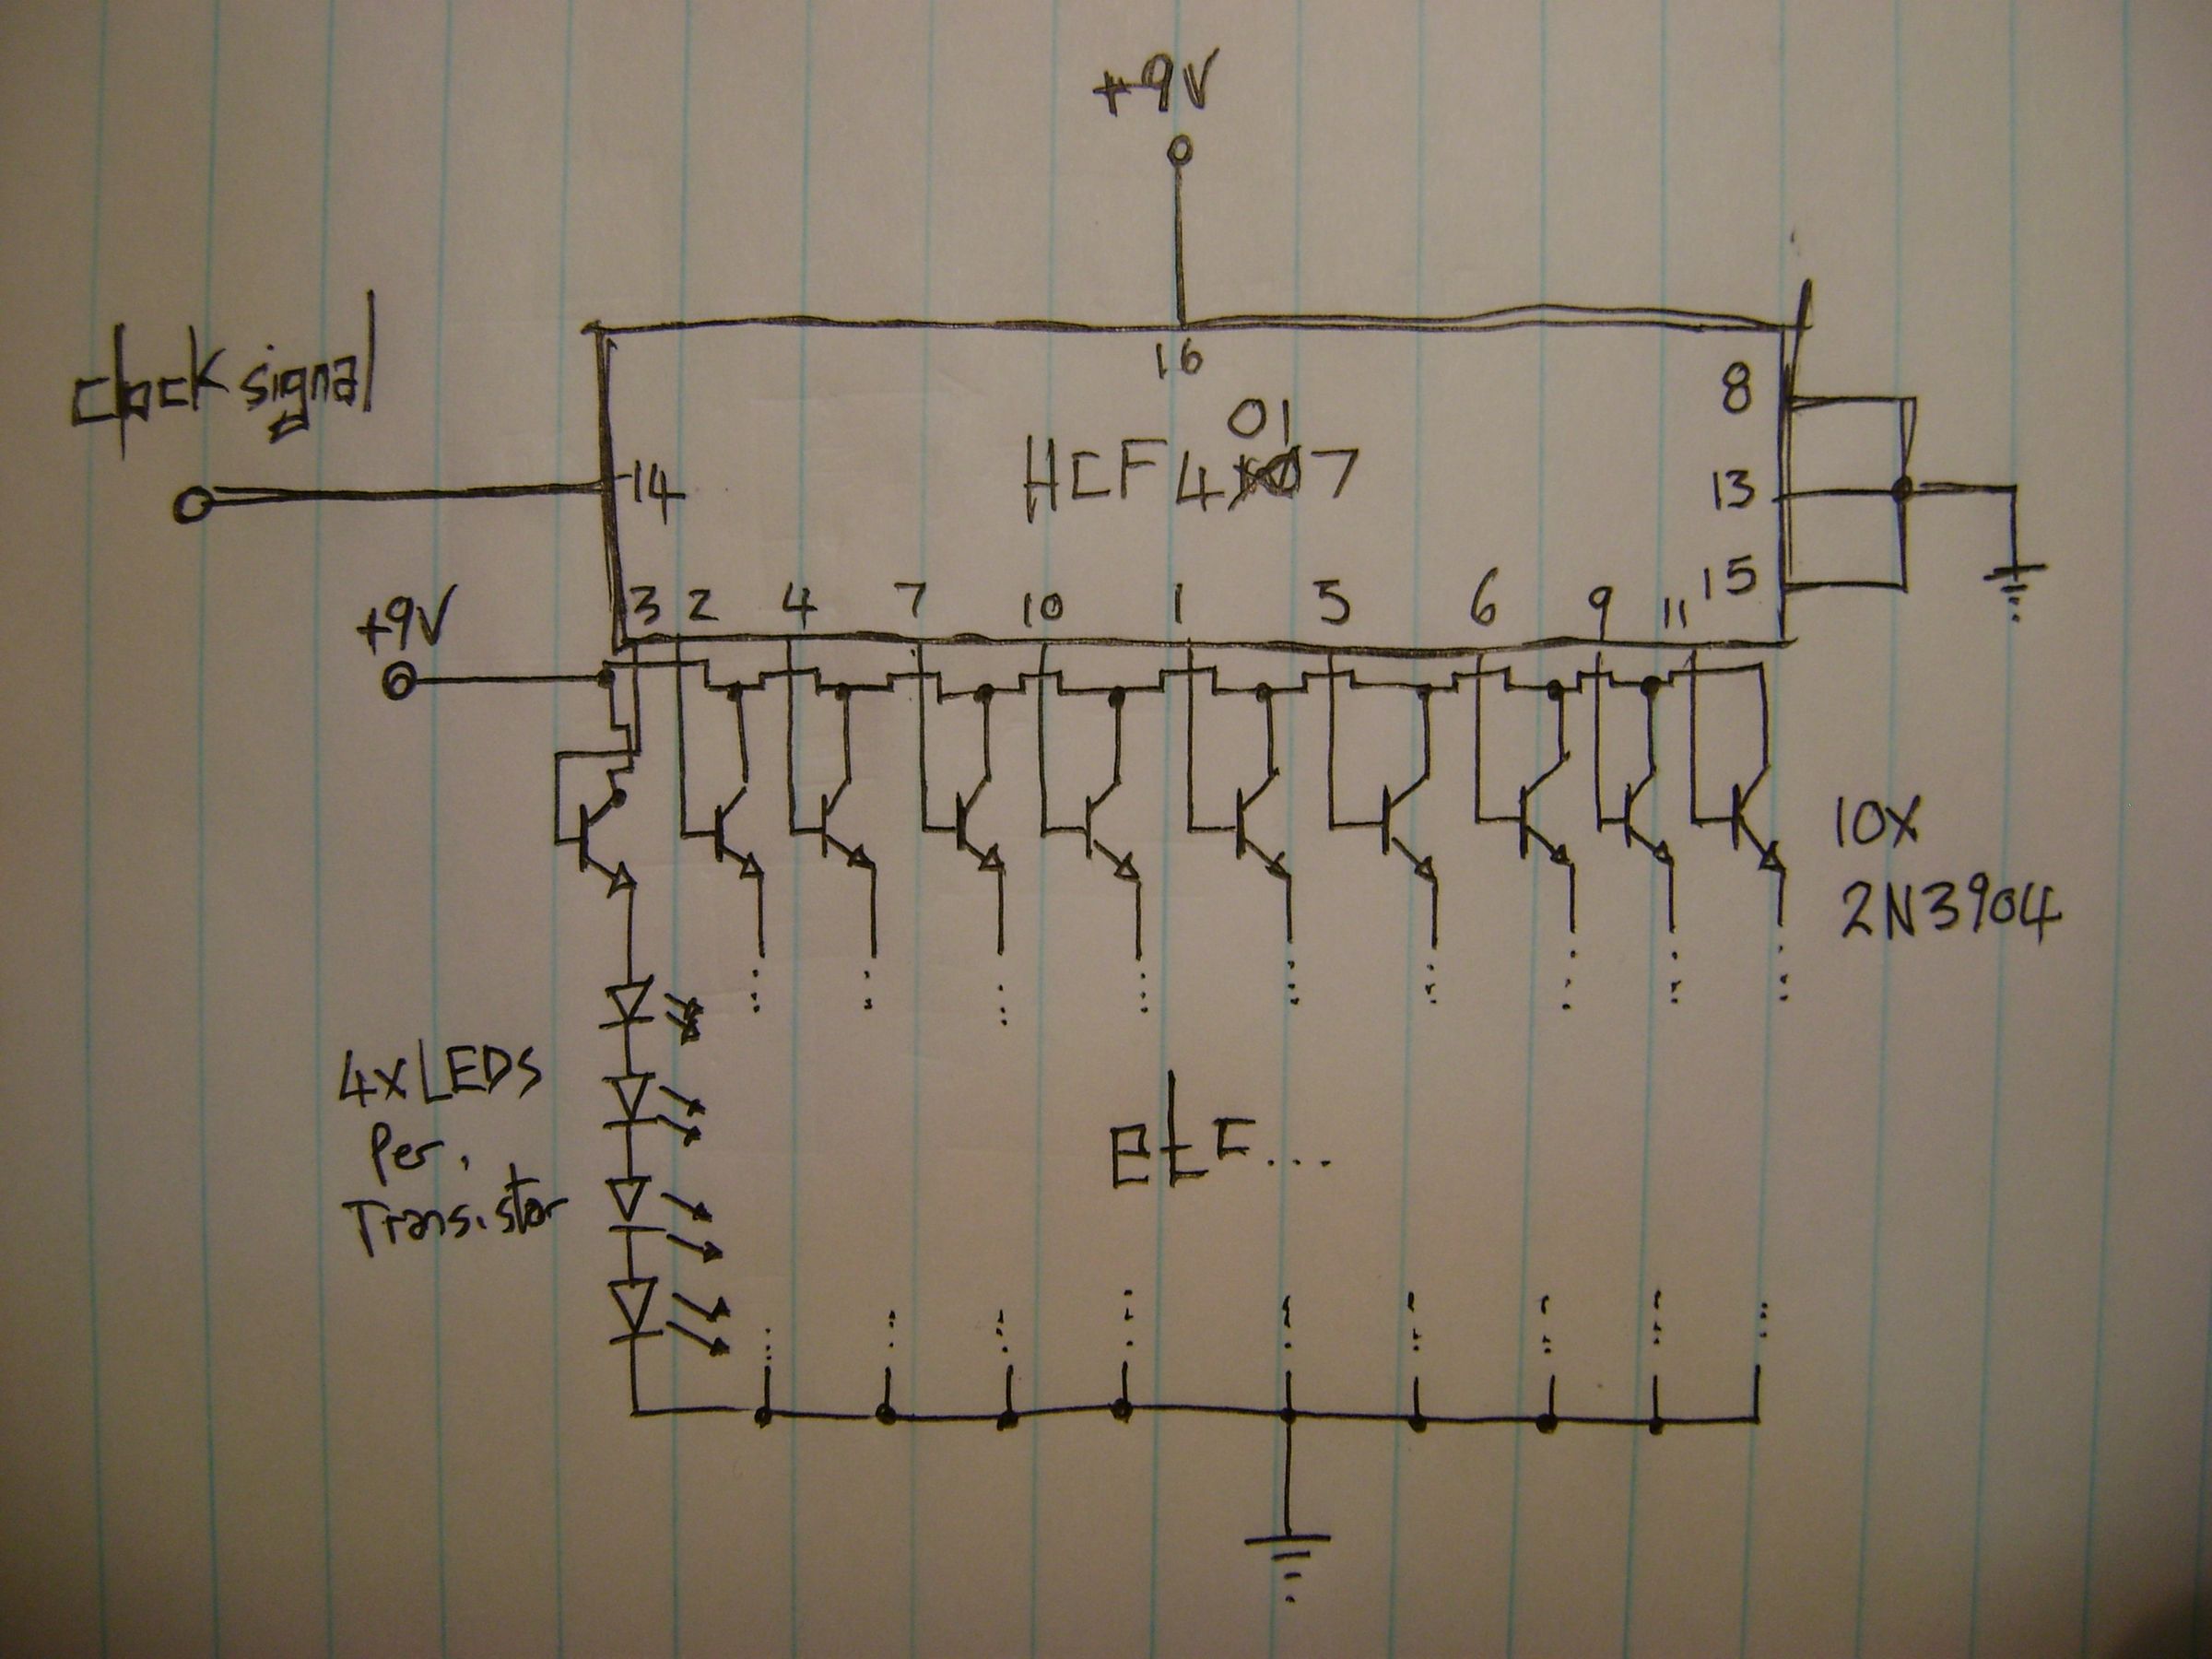 +9V
clock signal
16
8
01
HCF 4107
14
13
15
+9V
3 2 4 7 10 1 5 6 9 11
10X
2N3904
4X LEDS
Per.
Transistor
etc...